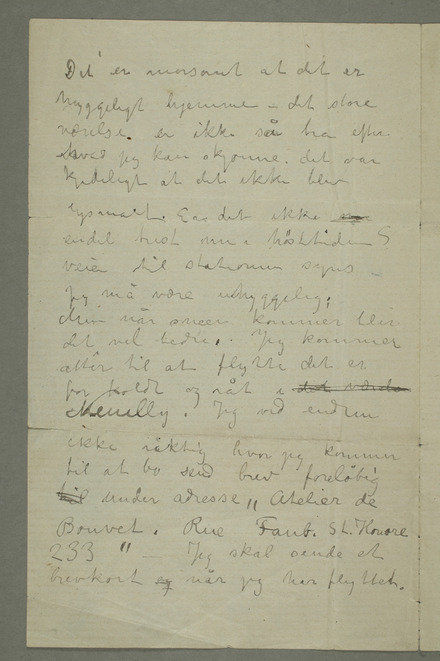 Det er morsomt at det er
hyggeligt hjemme – det store
værelse er ikke så bra efter
hvad jeg kan skjønne. det var
kjedeligt at det ikke blev
lysmalt. Er det ikke
endel trist nu i høsttiden
veien til stationen synes
jeg må være uhyggelig;
Men når sneen kommer blir
det vel bedre. Jeg kommer
atter til at flytte det er
for koldt og råt i det værelse
Neuilly. Jeg ved endnu
ikke riktig hvor jeg kommer
til at bo send brev foreløbig
til under adresse „ Atelier de
Bouvet. Rue Faub. St. Honore.
233 " — Jeg skal sende et
brevkort og når jeg har flyttet.